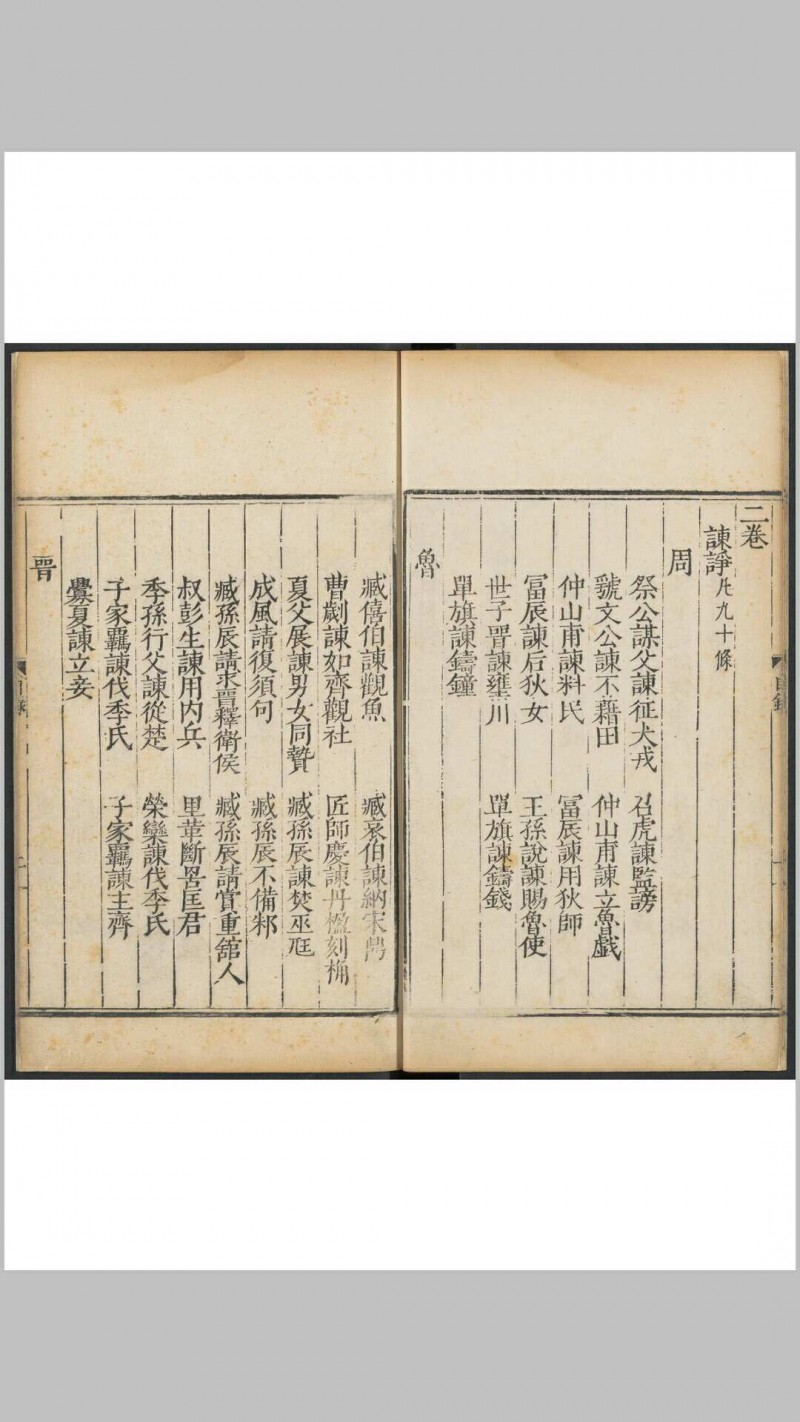 二卷
諫諍凡九十條
周
祭公謀父諫征犬戎 召虎諫監謗
虢文公諫不藉田 仲山甫諫立魯戲
仲山甫諫料民 冨辰諫用狄師
冨辰諫后狄女 王孫說諫賜魯使
世子晉諫壅川 單旗諫鑄錢
單旗諫鑄鐘
魯
目錄
臧僖伯諫觀魚 臧哀伯諫納宋鼎
曹劌諫如齊觀社 匠師慶諫丹楹刻桷
夏父展諫男女同贄 臧孫辰諫焚巫尪
成風請復須句 臧孫辰不備邾
臧孫辰請求晉釋衛侯 臧孫辰請賞重舘人
叔彭生諫用內兵 里革斷罟匡君
季孫行父諫從楚 榮欒諫伐季氏
子家羈諫伐季氏 子家羈諫主齊
釁夏諫立妾
晉